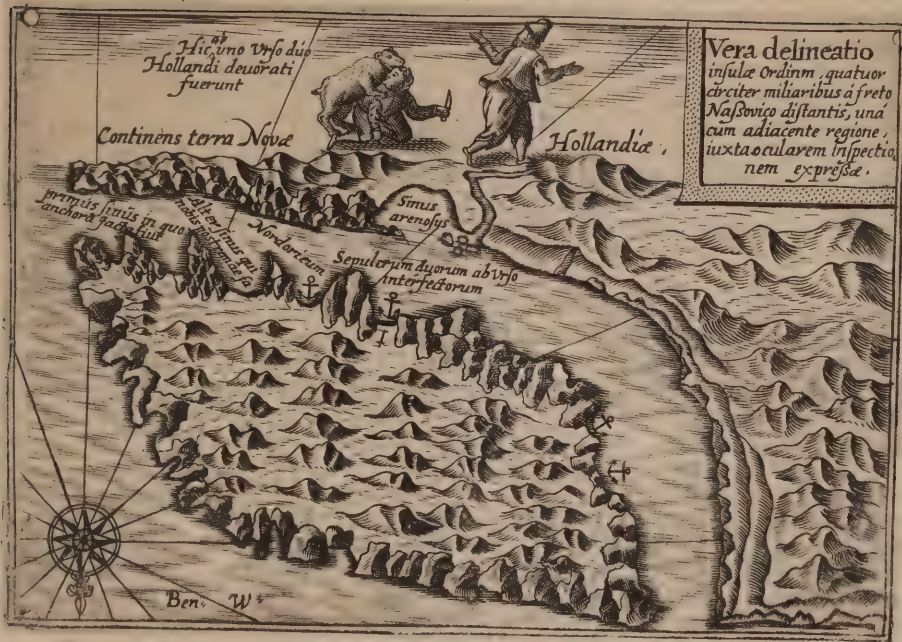 Hic, ab uno Urso duo
Hollandi devorati
fuerunt
Vera delineatio
insulæ Ordinm, quatuor
circiter miliaribus á freto
Naſſovico diſtantis, unà
cum adiacente regione,
iuxta ocularem inſpectio,
nem expreſſæ.
Continens terra Novæ
Hollandiæ.
primus ſinus in quo
anchora jactabat
Alter ſinus qui
nobis
Nordoſteum
Sinus
arenoſus
Sepulcrum duorum ab Vrſo
interfectorum
Ben: W: